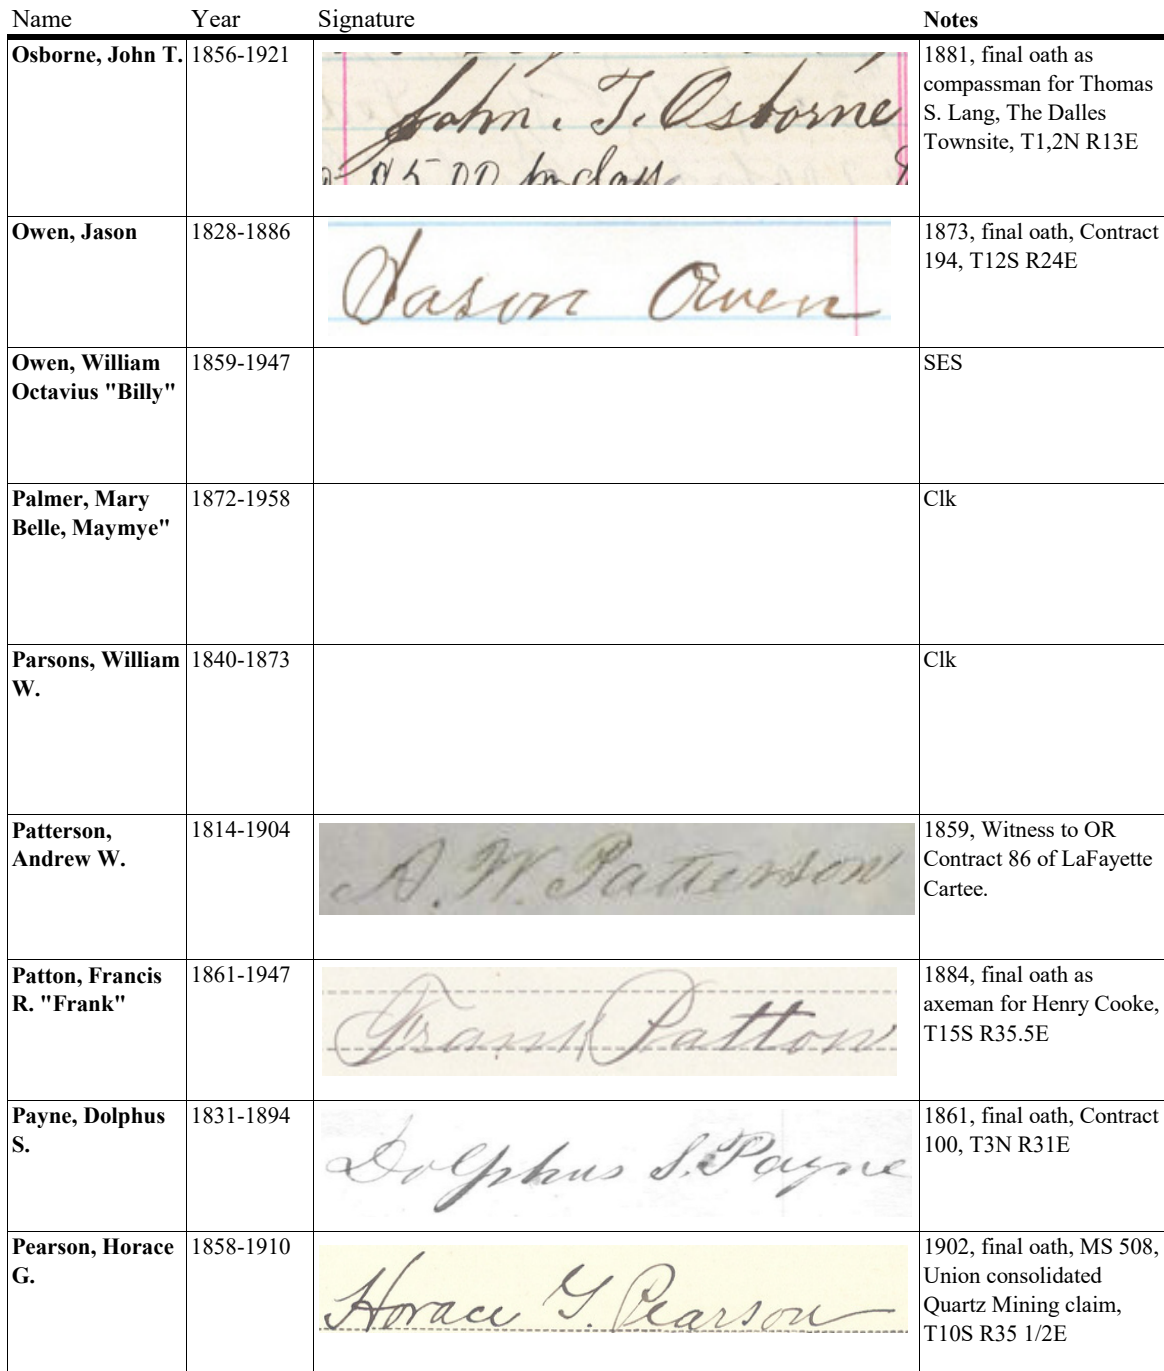 Name Year Signature Notes
Osborne, John T. 1856-1921 John. T. Osborne 1881, final oath as
compassman for Thomas
S. Lang, The Dalles
Townsite, T1,2N R13E
$5.00 per day
Owen, Jason 1828-1886 Jason Owen 1873, final oath, Contract
194, T12S R24E
Owen, William 1859-1947 SES
Octavius "Billy"
Palmer, Mary 1872-1958 Clk
Belle, Maymye"
Parsons, William 1840-1873 Clk
W.
Patterson, 1814-1904 A. W. Patterson 1859, Witness to OR
Andrew W. Contract 86 of LaFayette
Cartee.
Patton, Francis 1861-1947 Frank Patton 1884, final oath as
R. "Frank" axeman for Henry Cooke,
T15S R35.5E
Payne, Dolphus 1831-1894 Dolphus S. Payne 1861, final oath, Contract
S. 100, T3N R31E
Pearson, Horace 1858-1910 Horace G. Pearson 1902, final oath, MS 508,
G. Union consolidated
Quartz Mining claim,
T10S R35 1/2E